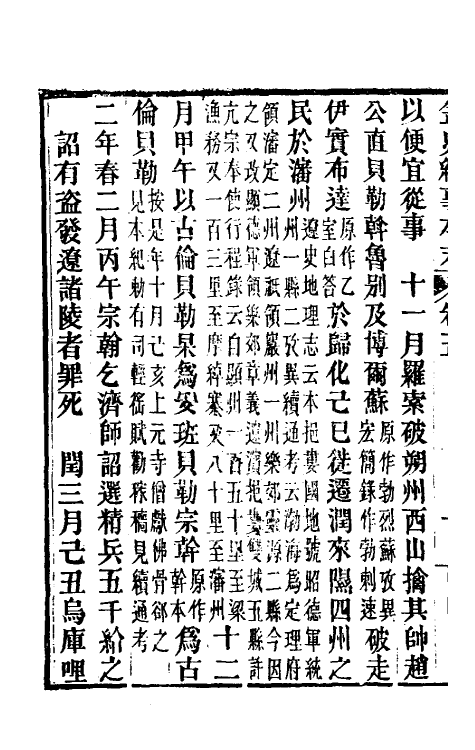 以便宜從事　十一月羅索破朔州西山擒其帥趙
公直貝勒幹魯別及博爾蘇原作勃烈蘇攷異宏簡錄作勃剌速破走
伊實布達原作乙室白答於歸化己巳徙遷潤來隰四州之
民於瀋州遼史地理志云本挹婁國地號昭德軍統州一縣二攷異續通考云渤海為定理府
領瀋定二州遼祇領巖州一州樂郊靈源二縣今因之又改顯德軍領樂郊章義遼濱挹婁雙城五縣許
亢宗奉使行程錄云自顯州一百五十里至梁漁務又一百三里至摩綽寨又八十里至瀋州十二
月甲午以古倫貝勒杲為安班貝勒宗幹原作幹本為古
倫貝勒按是年十月己亥上元寺僧獻佛骨郤之見本紀勅有司輕徭賦勸稼穡見續通考
二年春二月丙午宗翰乞濟師詔選精兵五千給之
詔有盜發遼諸陵者罪死　閏三月己丑烏庫哩